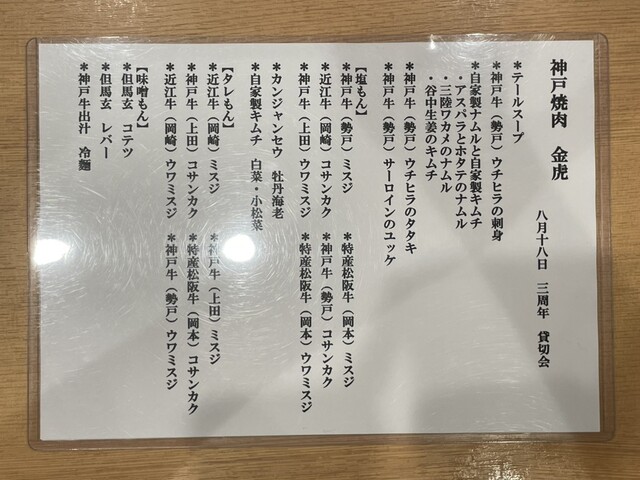 神戸焼肉　金虎　　八月十八日　三周年　貸切会
＊テールスープ
＊神戸牛（勢戸）ウチヒラの刺身
＊自家製ナムルと自家製キムチ
・アスパラとホタテのナムル
・三陸ワカメのナムル
・谷中生姜のキムチ
＊神戸牛（勢戸）ウチヒラのタタキ
＊神戸牛（勢戸）サーロインのユッケ
【塩もん】
＊神戸牛（勢戸）ミスジ　　＊特産松阪牛（岡本）ミスジ
＊近江牛（岡崎）コサンカク　＊神戸牛（勢戸）コサンカク
＊神戸牛（上田）ウワミスジ　＊特産松阪牛（岡本）ウワミスジ
＊カンジャンセウ　牡丹海老
＊自家製キムチ　白菜・小松菜
【タレもん】
＊近江牛（岡崎）ミスジ　　＊神戸牛（上田）ミスジ
＊神戸牛（上田）コサンカク　＊特産松阪牛（岡本）コサンカク
＊近江牛（岡崎）ウワミスジ　＊神戸牛（勢戸）ウワミスジ
【味噌もん】
＊但馬玄　コテツ
＊但馬玄　レバー
＊神戸牛出汁　冷麵